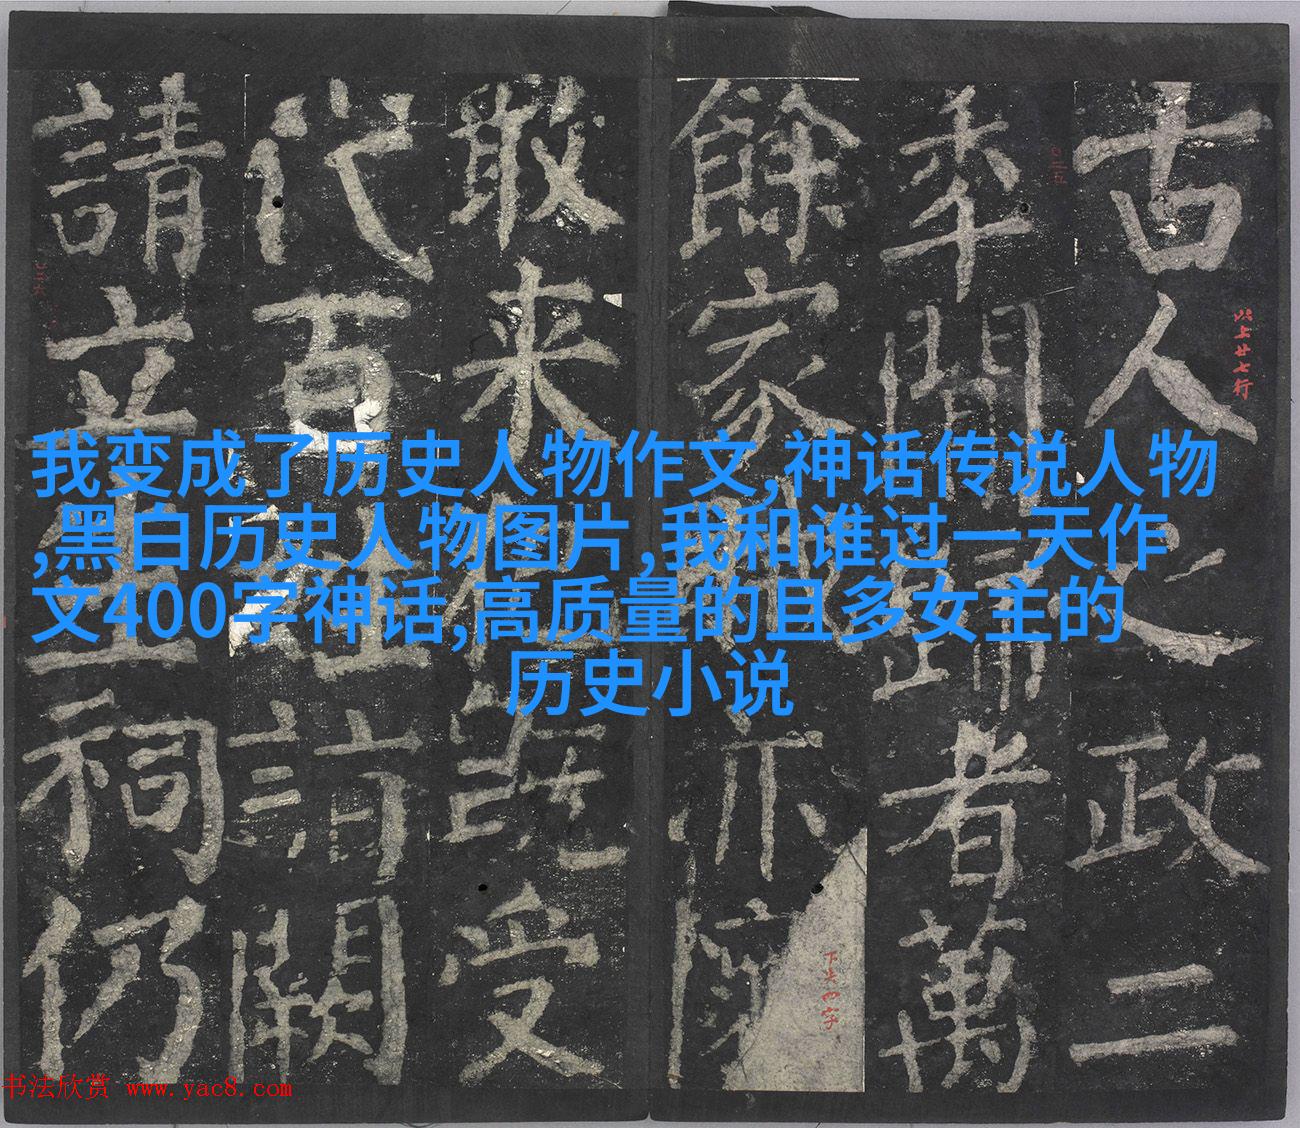 古人之政二
年歸者萬
餘家亦
敢来受
代百詣闕
請立生祠仍
以上廿七行
下失四字
我变成了历史人物作文,神话传说人物
,黑白历史人物图片,我和谁过一天作
文400字神话,高质量的且多女主的
历史小说
书法欣赏 www.yac8.com